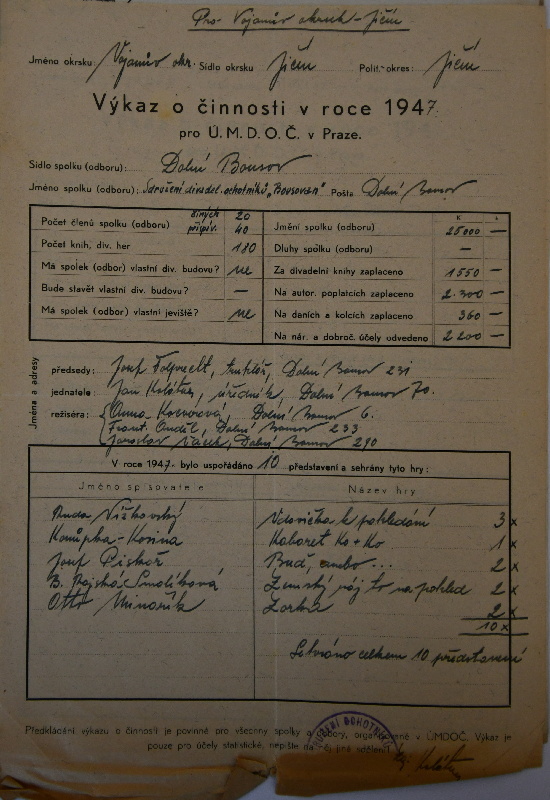 Pro Vojanův okrsek - Jičín
Jméno okrsku: Vojanův okr. Sídlo okrsku Jičín Polit. okres: Jičín
Výkaz o činnosti v roce 1947.
pro Ú.M.D.O.Č. v Praze.
Sídlo spolku (odboru): Dolní Bousov
Jméno spolku (odboru): Sdružení divadel. ochotníků „Bousovan" Pošta Dolní Bousov
Počet členů spolku (odboru) činných 20
přispív. 40
Počet knih, div. her 180
Má spolek (odbor) vlastní div. budovu? ne
Bude stavět vlastní div. budovu? —
Má spolek (odbor) vlastní jeviště? ne
K
Jmění spolku (odboru) 25000 —
Dluhy spolku (odboru) —
Za divadelní knihy zaplaceno 1550 —
Na autor. poplatcích zaplaceno 2.300 —
Na daních a kolcích zaplaceno 360 —
Na nár. a dobroč. účely odvedeno 2200 —
Jména a adresy
předsedy: Josef , truhlář, Dolní Bousov 231
jednatele: Jan Kolátor, úředník, Dolní Bousov 70.
režiséra: Anna , Dolní Bousov 6.
Frant. Anděl, Dolní Bousov 233
Jaroslav , Dolní Bousov 290
V roce 1947 bylo uspořádáno 10 představení a sehrány tyto hry:
Jméno spisovatele Název hry
Ruda Vížkovský Vdovička k pohledání 3x
Konůpka - Kosina Kabaret Ko + Ko 1x
Josef Piskoř Buď anebo... 2x
B. Rajská-Smolíková Zemský ráj to na pohled 2x
Otto Minařík Zorka 2x
10x
Sehráno celkem 10 představení
Předkládání výkazu o činnosti je povinné pro všechny spolky a odbory, organisované v ÚMDOČ. Výkaz je
pouze pro účely statistické, nepište na něj jiné sdělení!